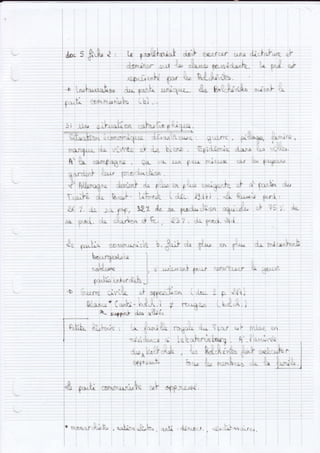 doc 5 fiche 2 : le prolétariat doit exercer une dictature et
dominer sur la classe possédante. Le prol. est
représenté par les Bolchéviks.
Instauration du parti unique. Les Bolchéviks misent le
parti communiste
b) une situation catastrophique
Situation économique désastreuse : guerre, pillages, famine,
manque de vivres et de biens. Epidémie dans les villes.
A la campagne, ça va un peu mieux car les paysans
gardent leur production.
Allemagne devient de plus en plus exigeante et à partir du
Traité de Brest-Litovsk (déc. la Russie perd :
26 % de sa pop, 32 % de sa production agricole et 75 % de
sa prod. de charbon et fer, 23 % de prod.
le parti communiste b. fait de plus en plus de mécontents
bourgeoisie
noblesse
partis interdits
s'unissent pour renverser le gouv.
Guerre civile et opposition (doc 2 p.
Blancs * (anti-bolch.) ≠ rouges (bolch.)
support des alliés
Petite histoire : la famille royale du Tsar est mise en
résidence à Iekaterinbourg. A l'arrivée
des , les Bolchéviks font exécuter
tous les membres de la famille.
le parti communiste est oppressé.
* monarchistes, nationalistes, anti-